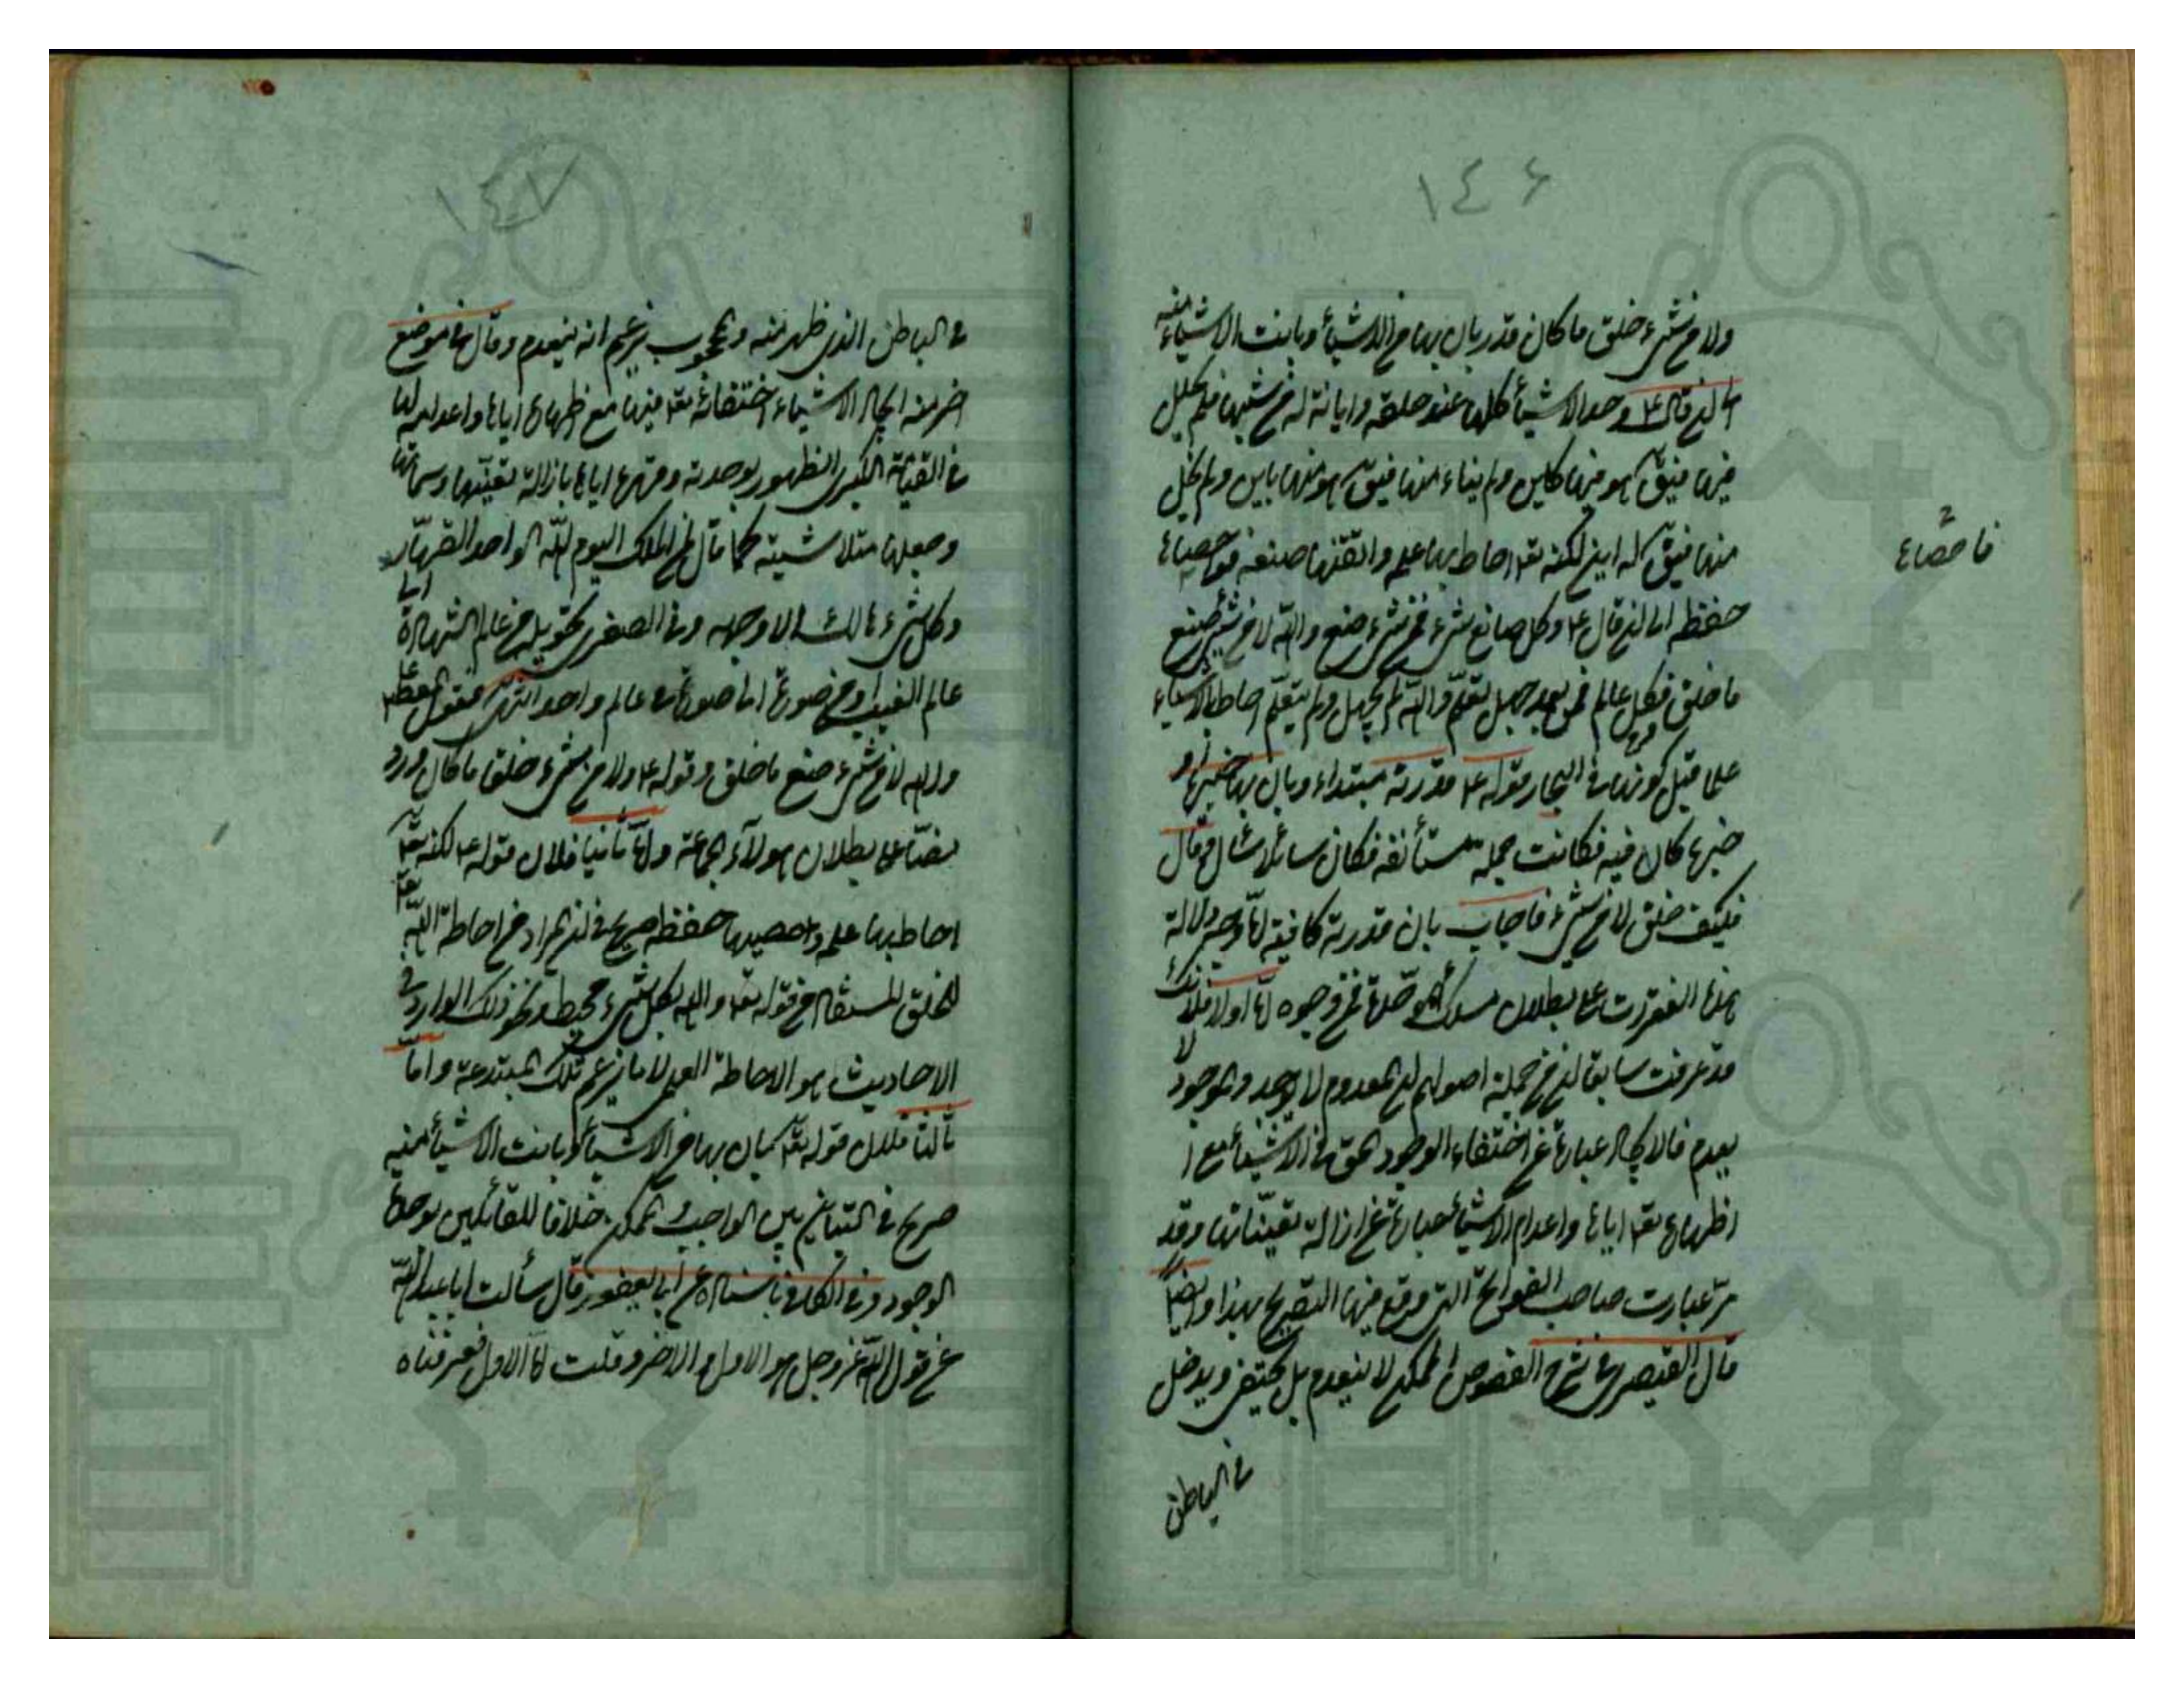 ١٤٦
ولا من شیء خلق ما کان قدرة بان بها من الاشیاء وبانت الاشیاء منه
الی ان قال ع وحد الاشیاء کلها عند خلقه وابانة له من شبهها فلم یحلل
فیها فیق هو فیها کاین ولم یناء عنها فیق هو منها باین ولم یخل
منها فیق له این لکنه تعـ احاط بها علمه واتقنها صنعه واحصاها
فاحصاها
حفظه الی ان قال ع وکل صانع شیء فمن شیء صنع والله لا من شیء صنع
ما خلق فکل عالم فمن بعد جهل تعلم والله لم یجهل ولم یتعلم احاط بالاشیاء
علما قبل کونها فی البحار قوله ع قدرة مبتداء وبان بها خبرها او
خبرها کان فیه فکانت جملة مستأنفه فکان سائلا سأل وقال
فکیف خلق لا من شیء فاجاب بان قدرته کافیة وجه دلالة
هذه الفقرات علی بطلان مسلک من وجوه اما اولا فلانک
قد عرفت سابقا ان من جملة اصولهم ان المعدوم لا یوجد والموجود لا
یعدم فالایجاد عبارة عن اختفاء الوجود الحق فی الاشیاء مع ا
ظهاره تعـ ایاها واعدام الاشیاء عبارة عن ازالة تعیّناتها وقد
مرّ عبارت صاحب الفواتح التی وقع فیها التصریح بهذا وایضا
قال القیصری فی شرح الفصوص الممکن لا ینعدم بل یختفی ویدخل
فی الباطن
١٤٧
فی الباطن الذی ظهر منه والمحجوب یزعم انه ینعدم وقال فی موضع
اخر منه ایجاد الاشیاء اختفائه تعـ فیها مع اظهاره ایاها واعدامه لها
فی القیمة الکبری لظهوره بوحدته وقهره ایاها بازالة تعیّنها وسماتها
وجعلها متلاشیة کما قال لمن الملک الیوم لله الواحد القهّار
وکل شیء هالک الا وجهه وفی الصغری تحویله من عالم الشهادة الی
عالم الغیب او من صورة الی صورة فی عالم واحد انتهی فقوله ع
والله لا من شیء صنع ما خلق وقوله ع ولا من شیء خلق ما کان ورد
نصّا علی بطلان هولآء الجماعة واما ثانیا فلان قوله ع لکنه تعـ
احاط بها علمه واحصیها حفظه صریح فی ان المراد من احاطة الله تعـ
للخلق المستفاد من قوله تعـ والله بکل شیء محیط ونحو ذلک الوارد فی
الاحادیث هو الاحاطة العلمی لا ما یزعم تلک المبتدعة واما
ثالثا فلان قوله بان بها من الاشیاء وبانت الاشیاء منه
صریح فی التباین بین الواجب والممکن خلافا للقائلین بوحدة
الوجود وفی الکافی باسناده عن ابن ابی یعفور قال سألت ابا عبد الله
عن قول الله عز وجل هو الاول والاخر وقلت اما الاول فعرفناه